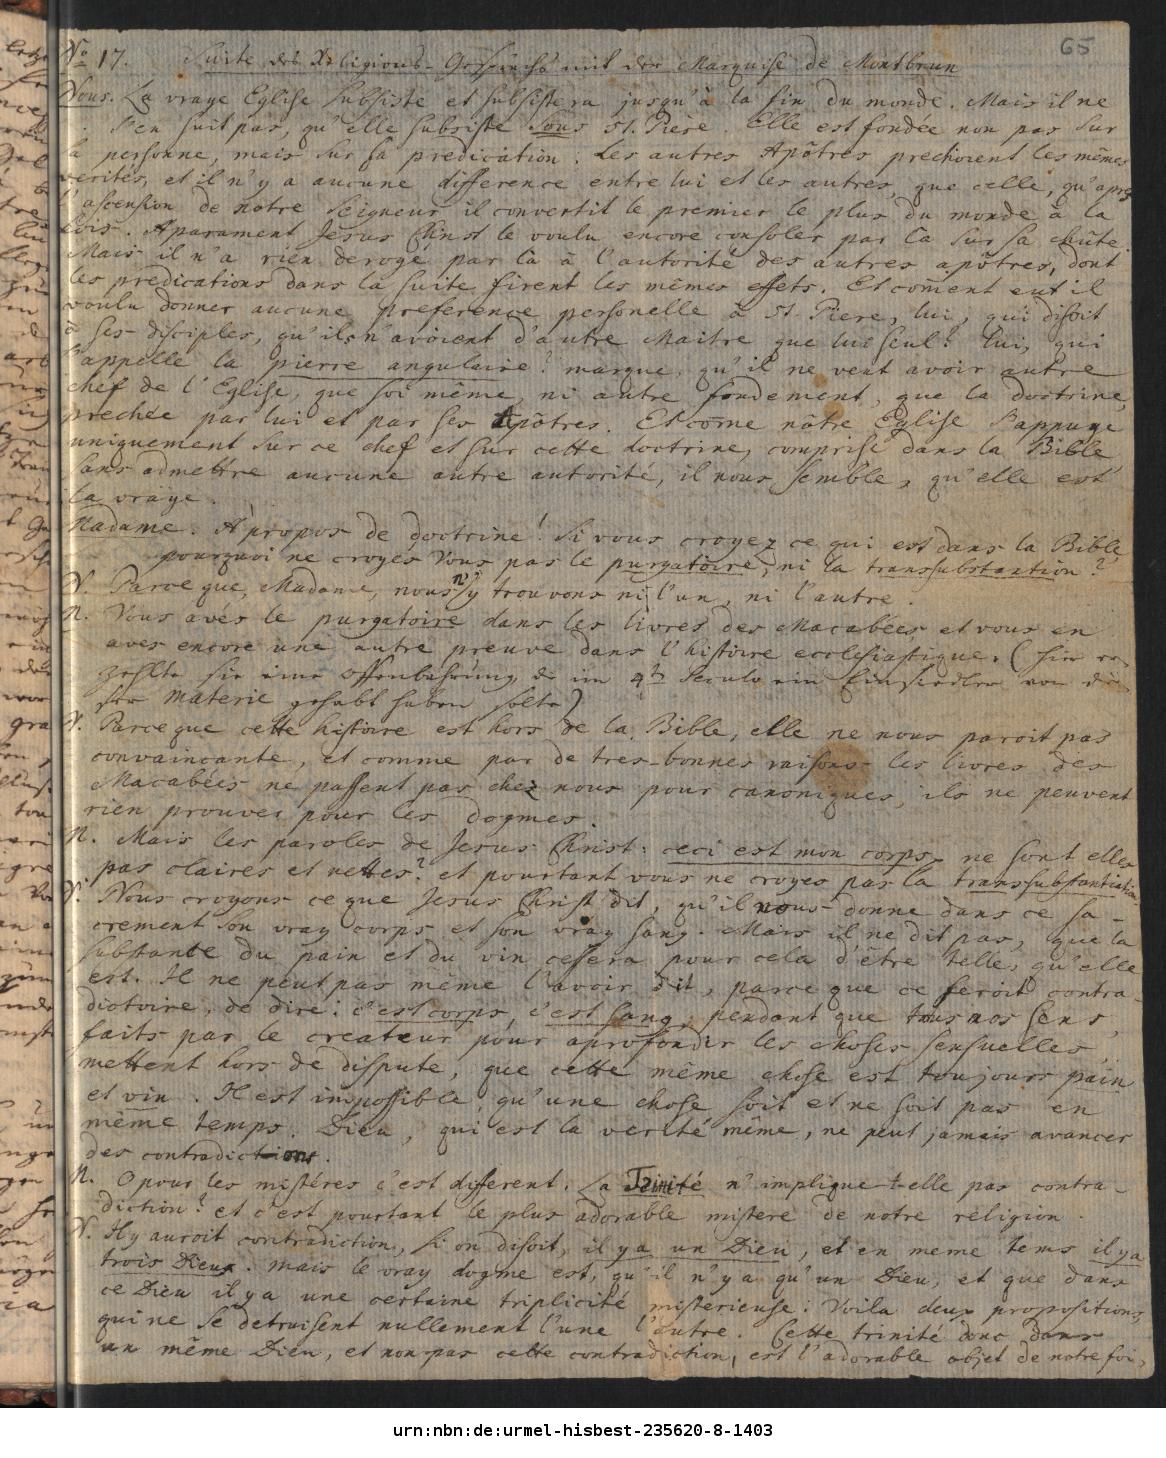 65
No 17. Suite des Religions-Gesprächs mit der Marquise de Montbrun
Nous. La vraye Eglise subsiste et subsistera jusqu'à la fin du monde. Mais il ne
s'en suit pas, qu'elle subsiste sous St. Piere. Elle est fondée non pas sur
la personne, mais sur sa predication. Les autres Apôtres prechoient les mêmes
verités, et il n'y a aucune difference entre lui et les autres, que celle, qu'après
l'ascension de notre Seigneur il convertit le premier le plus du monde à la
fois. Aparament Jesus Christ le voulu encore consoler par là sur sa chûte.
Mais il n'a rien derogé par là à l'autorité des autres apôtres, dont
les predications dans la suite firent les mêmes effets. Et com̄ent eut il
voulu donner aucune preference personelle à St. Piere, lui, qui disoit
à ses disciples, qu'ils n'avoient d'autre Maitre que lui seul? lui, qui
s'appelle la pierre angulaire? marque, qu'il ne veut avoir autre
chef de l'Eglise, que soi même, ni autre fondement, que la doctrine,
prechée par lui et par ses Apôtres. Et com̄e nôtre Eglise s'appuye
uniquement sur ce chef et sur cette doctrine, comprise dans la Bible,
sans admettre aucune autre autorité, il nous semble, qu'elle est
la vraye.
Madame. A propos de doctrine! Si vous croyez ce qui est dans la Bible,
pourquoi ne croyes vous pas le purgatoire, ni la transsubstantion?
N. Parceque, Madame, nous n'y trouvons ni l'un, ni l'autre.
M. Vous avés le purgatoire dans les livres des Macabées, et vous en
aves encore une autre preuve dans l'histoire ecclesiastique. (hier er-
zehlte sie eine Offenbahrung die im 4ten Seculo ein Einsiedler von die-
ser Materie gehabt haben solte)
N. Parceque cette histoire est hors de la Bible, elle ne nous paroit pas
convaincante, et comme par de tres-bonnes raisons les livres des
Macabées ne passent pas chez nous pour canoniques, ils ne peuvent
rien prouver pour les dogmes.
M. Mais les paroles de Jesus Christ: ceci est mon corps, ne sont elles
pas claires et nettes? et pourtant vous ne croyes pas la transsubstantiation.
N. Nous croyons ce que Jesus Christ dit, qu'il nous donne dans ce sa-
crement son vray corps et son vray sang. Mais il ne dit pas, que la
substance du pain et du vin cessera pour cela d'être telle, qu'elle
est. Il ne peut pas même l'avoir dit, parce que ce seroit contra-
dictoire, de dire: c'est corps, c'est sang, pendant que tous nos sens,
faits par le createur pour aprofondir les choses sensuelles,
mettent hors de dispute, que cette même chose est toujours pain
et vin. Il est impossible, qu'une chose soit et ne soit pas en
même temps. Dieu, qui est la verité même, ne peut jamais avancer
des contradictions.
M. O pour les mistéres c'est different. La Trinité n'implique-t-elle pas contra-
diction? et c'est pourtant le plus adorable mistere de notre religion.
N. Il y auroit contradiction, si on disoit, il y a un Dieu, et en meme tems il y a
trois Dieux. mais le vray dogme est, qu'il n'y a qu'un Dieu, et que dans
ce Dieu il y a une certaine triplicité misterieuse: Voila deux propositions,
qui ne se detruisent nullement l'une l'autre. Cette trinité donc dans
un même Dieu, et non pas cette contradiction, est l'adorable objet de notre foi,
urn:nbn:de:urmel-hisbest-235620-8-1403